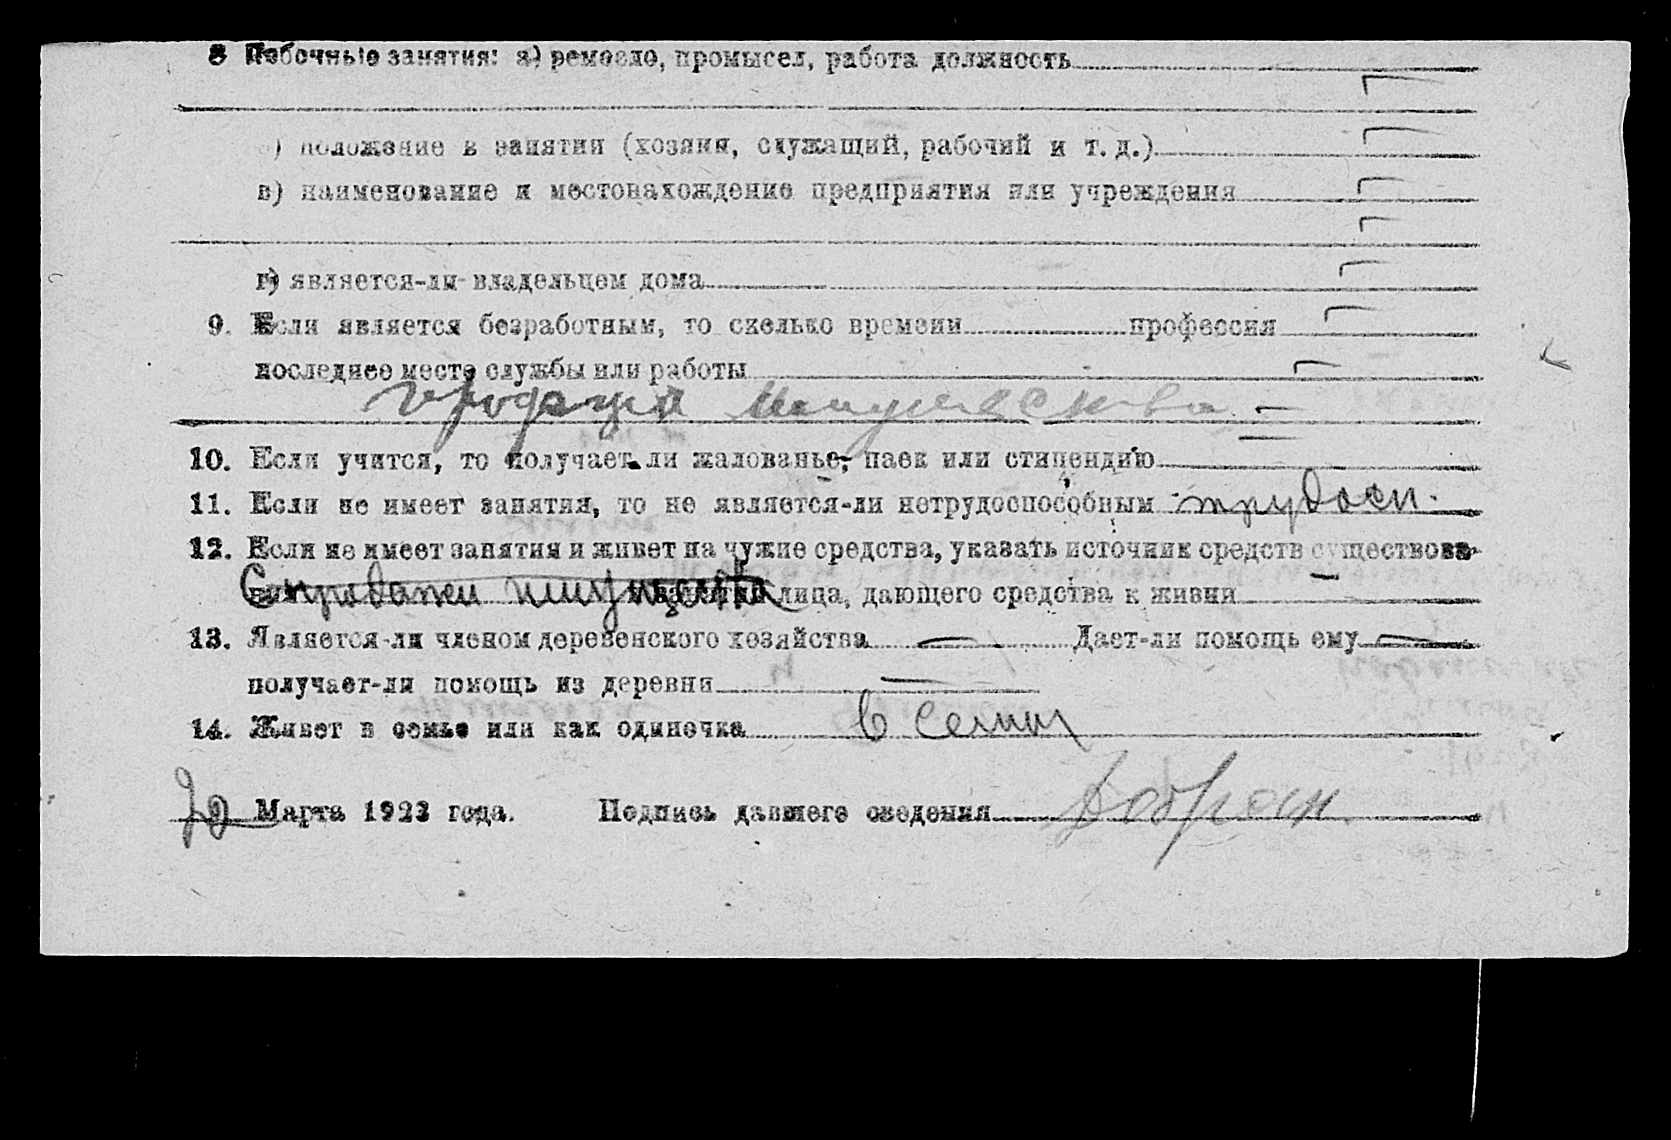 8 Побочные занятия: а) ремесло, промысел, работа должность
) положение в занятии (хозяин, служащий, рабочий и т. д.)
в) наименование и местонахождение предприятия или учреждения
г) является-ли владельцем дома
9. Если является безработным, то сколько времени профессия
последнее место службы или работы
10. Если учится, то получает ли жалованье, паек или стипендию
11. Если не имеет занятия, то не является-ли нетрудоспособным трудосп.
12. Если не имеет занятия и живет на чужие средства, указать источник средств существова-
С продажи имущества лица, дающего средства к жизни
13. Является-ли членом деревенского хозяйства — Дает-ли помощь ему —
получает-ли помощь из деревни —
14. Живет в семье или как одиночка в семьи
Марта 1923 года. Подпись давшего сведения